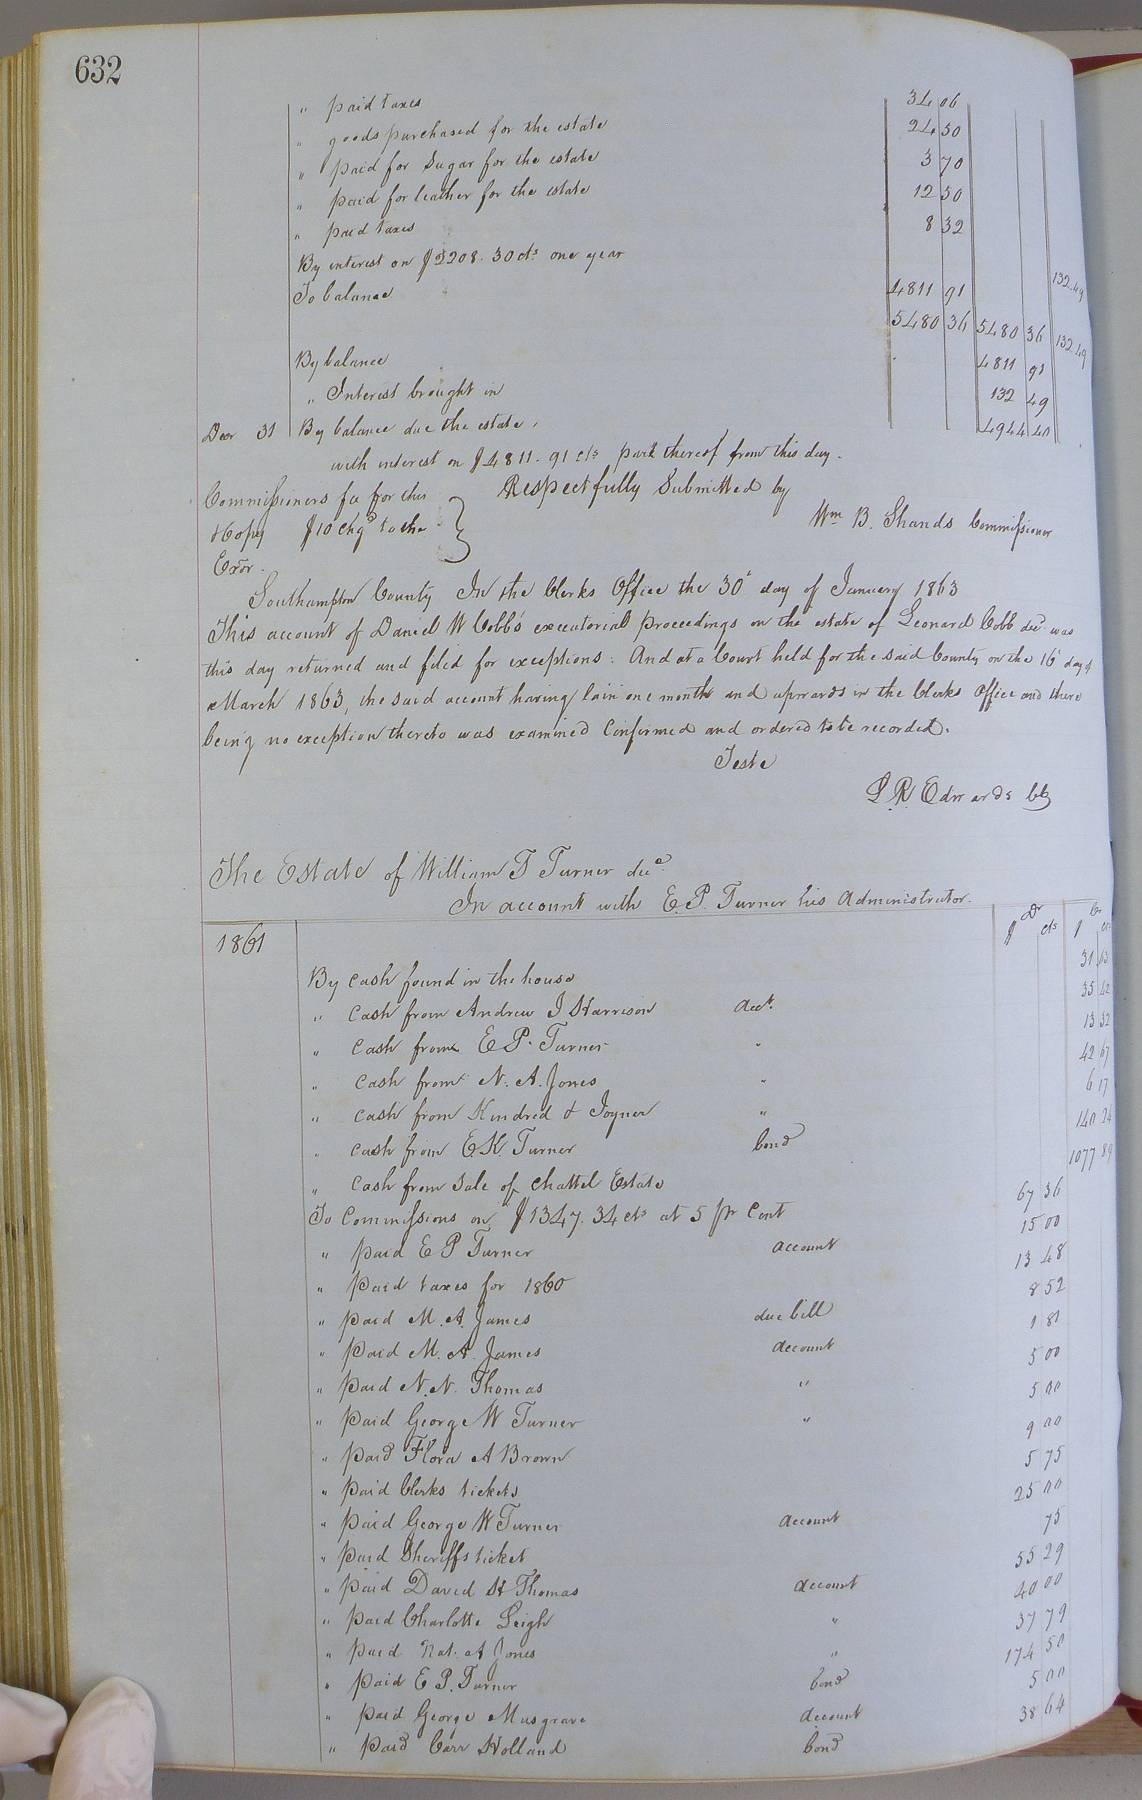 632
" paid taxes 34 06
" goods purchased for the estate 24 50
" paid for Sugar for the estate 3 70
" paid for leather for the estate 12 50
" paid taxes 8 32
By interest on $2208. 30 cts one year 132.49
To balance 4811 91
5480 36 5480 36 132.49
By balance 4811 91
" Interest brought in 132 49
Decr 31 By balance due the estate, 4944 40
with interest on $4811. 91 cts part thereof from this day.
Commissioners fee for this Respectfully Submitted by
& Copy $10 chgd to the Wm B. Shands Commissioner
Exor.
Southampton County In the Clerks Office the 30" day of January 1863
This account of Daniel W Cobb's executorial proceedings on the estate of Leonard Cobb decd was
this day returned and filed for exceptions: And at a Court held for the said County on the 16" day of
March 1863, the said account having lain one month and upwards in the Clerks Office and there
being no exception thereto was examined Confirmed and ordered to be recorded.
Teste
L. R. Edwards Clk
The Estate of William T Turner decd
In account with E. P. Turner his Administrator.
Dr Cr
1861 $ cts $ cts
By Cash found in the house 31 13
" Cash from Andrew J Harrison acct. 35 42
" Cash from E P. Turner " 13 32
" Cash from N. A. Jones " 42 67
" Cash from Kindred & Joyner " 6 17
" Cash from E. K. Turner bond 140 24
" Cash from Sale of Chattel Estate 1077 89
To Commissions on $1347. 34 cts at 5 pr Cent 67 36
" paid E P Turner account 15 00
" paid taxes for 1860 13 48
" paid M. A. James due bill 8 52
" paid M. A. James account 1 81
" paid N. N. Thomas " 5 00
" paid George W Turner " 5 00
" paid Flora A Brown 9 00
" paid Clerks tickets 5 75
" paid George W Turner account 25 00
" paid Sheriffs ticket 75
" paid David H Thomas account 55 29
" paid Charlotte Leigh " 40 00
" paid Nat. A Jones " 37 79
" paid E P. Turner bond 174 50
" paid George Musgrave account 5 00
" paid Carr Holland bond 38 64